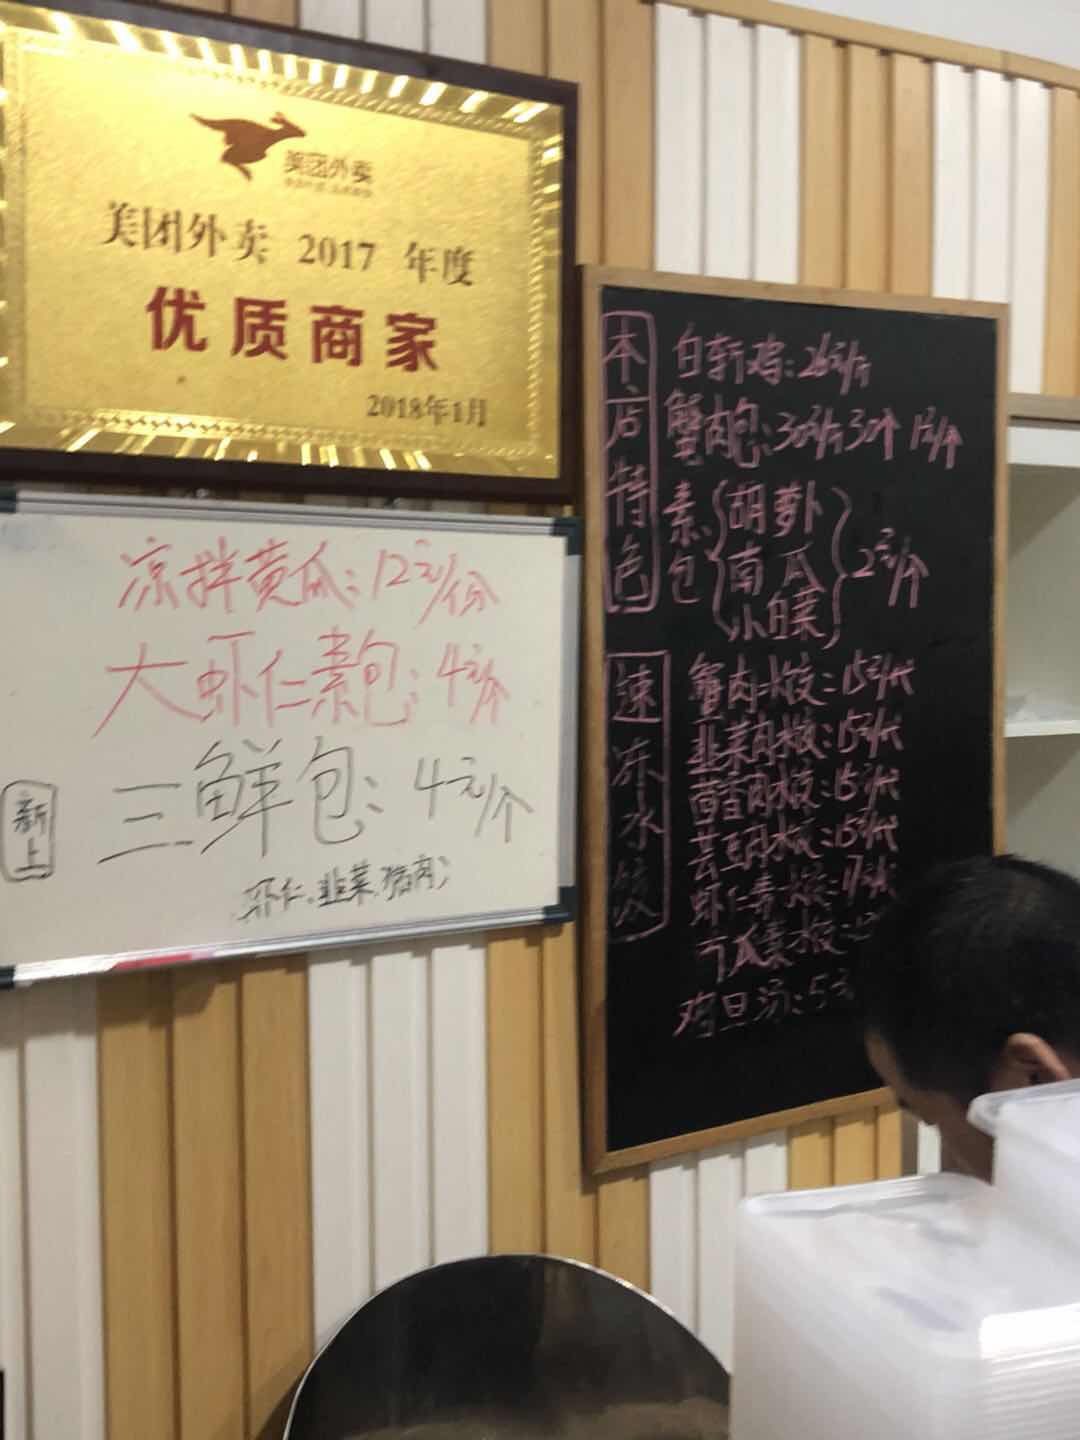 美团外卖
美团外卖 2017 年度
优质商家
2018年1月
凉拌黄瓜:12元/份
大虾仁素包:4元/个
新上
三鲜包:4元/个
虾仁、韭菜、猪肉
本店特色
白斩鸡:26元/斤
蟹肉包:30元/斤30个 1元/个
素包
胡萝卜
南瓜
小白菜
2元/个
速冻水饺
蟹肉水饺:15元/代
韭菜肉水饺:15元/代
茴香肉水饺:15元/代
芸豆肉水饺:15元/代
虾仁青水饺:17元/代
瓜素水饺:
鸡旦汤:5元